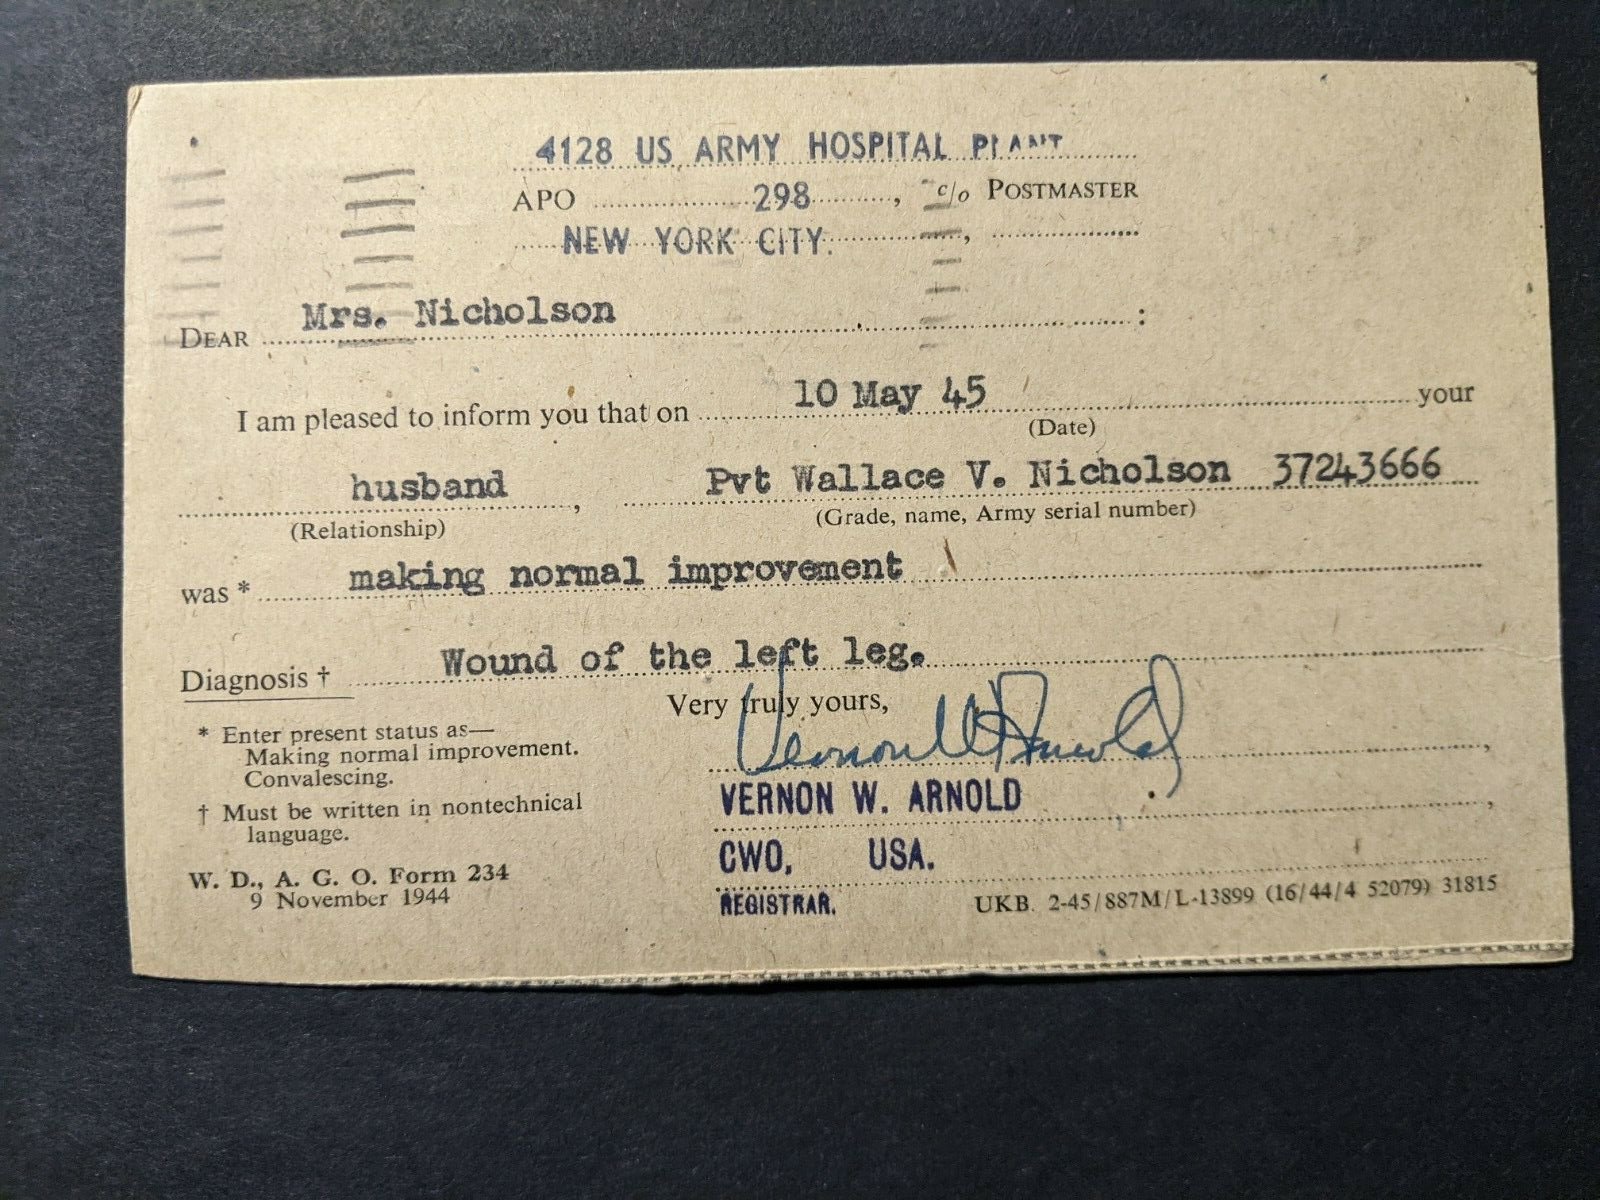 4128 US ARMY HOSPITAL PLANT
APO 298, c/o POSTMASTER
NEW YORK CITY.,
DEAR Mrs. Nicholson :
I am pleased to inform you that on 10 May 45 your
(Date)
husband, Pvt Wallace V. Nicholson 37243666
(Relationship) (Grade, name, Army serial number)
was * making normal improvement
Diagnosis † Wound of the left leg.
Very truly yours,
Vernon W Arnold,
VERNON W. ARNOLD,
CWO, USA.
REGISTRAR.
* Enter present status as—
Making normal improvement.
Convalescing.
† Must be written in nontechnical
language.
W. D., A. G. O. Form 234
9 November 1944
UKB. 2-45/887M/L-13899 (16/44/4 52079) 31815